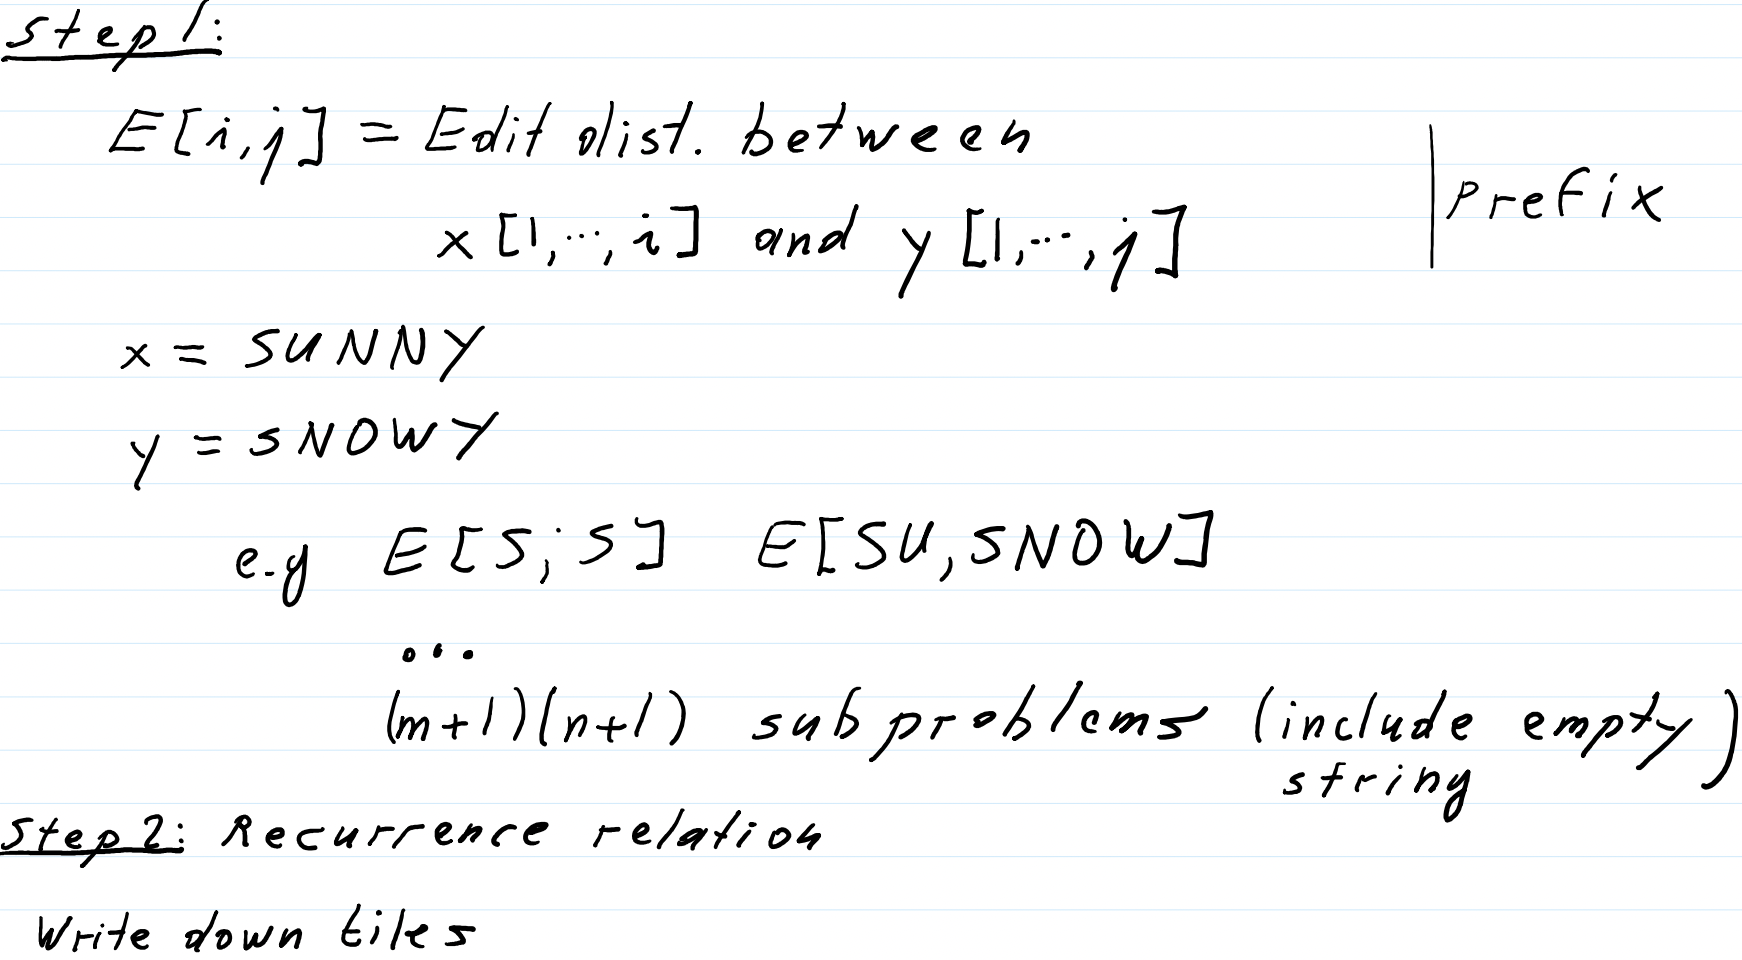 Step 1:
E[i,j] = Edit dist. between
x[1,...,i] and y[1,...,j]
prefix
x = SUNNY
y = SNOWY
e.g E[S;S] E[SU,SNOW]
...
(m+1)(n+1) subproblems (include empty
string)
Step 2: Recurrence relation
Write down tiles